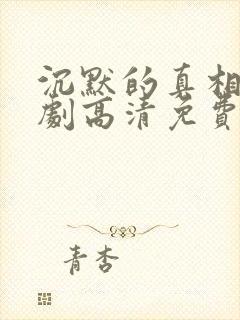 沉默的真相
劇高清免費
青杏